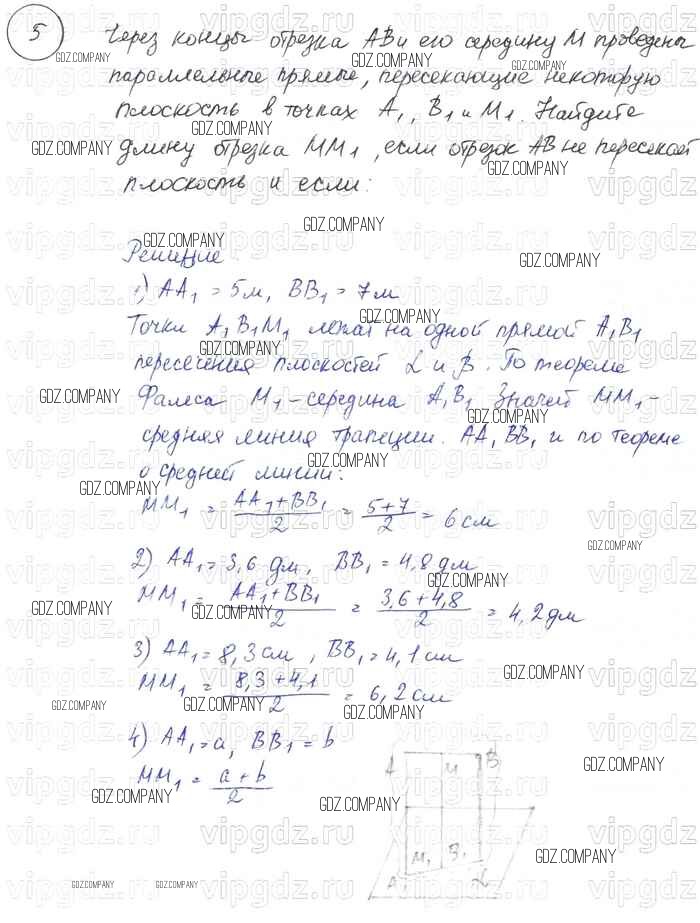 5 Через концы отрезка AB и его середину M проведены
параллельные прямые, пересекающие некоторую
плоскость в точках A1, B1 и M1. Найдите
длину отрезка MM1, если отрезок AB не пересекает
плоскость и если:
Решение
1) AA1 = 5м, BB1 = 7м
Точки A1 B1 M1 лежат на одной прямой A1B1
пересечения плоскостей α и β. По теореме
Фалеса M1 - середина A1B1 Значит MM1 -
средняя линия трапеции. AA1BB1 и по теореме
о средней линии:
MM1 = (AA1+BB1)/2 = (5+7)/2 = 6 см
2) AA1 = 3,6 дм, BB1 = 4,8 дм
MM1 = (AA1+BB1)/2 = (3,6+4,8)/2 = 4,2 дм
3) AA1 = 8,3 см, BB1 = 4,1 см
MM1 = (8,3+4,1)/2 = 6,2 см
4) AA1 = a, BB1 = b
MM1 = (a+b)/2
A M B
M1 B1
A1 α
GDZ.COMPANY
vipgdz.ru